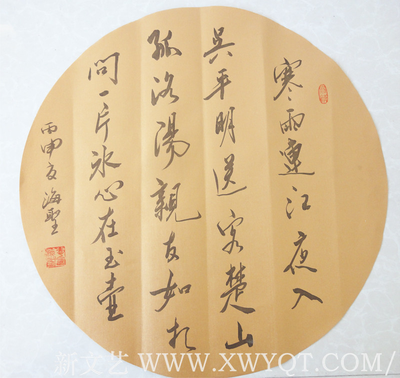 寒雨連江夜入
吳平明送客楚山
孤洛陽親友如相
問一片冰心在玉壺
丙申夏海聖
新文艺 WWW.XWYQT.COM/